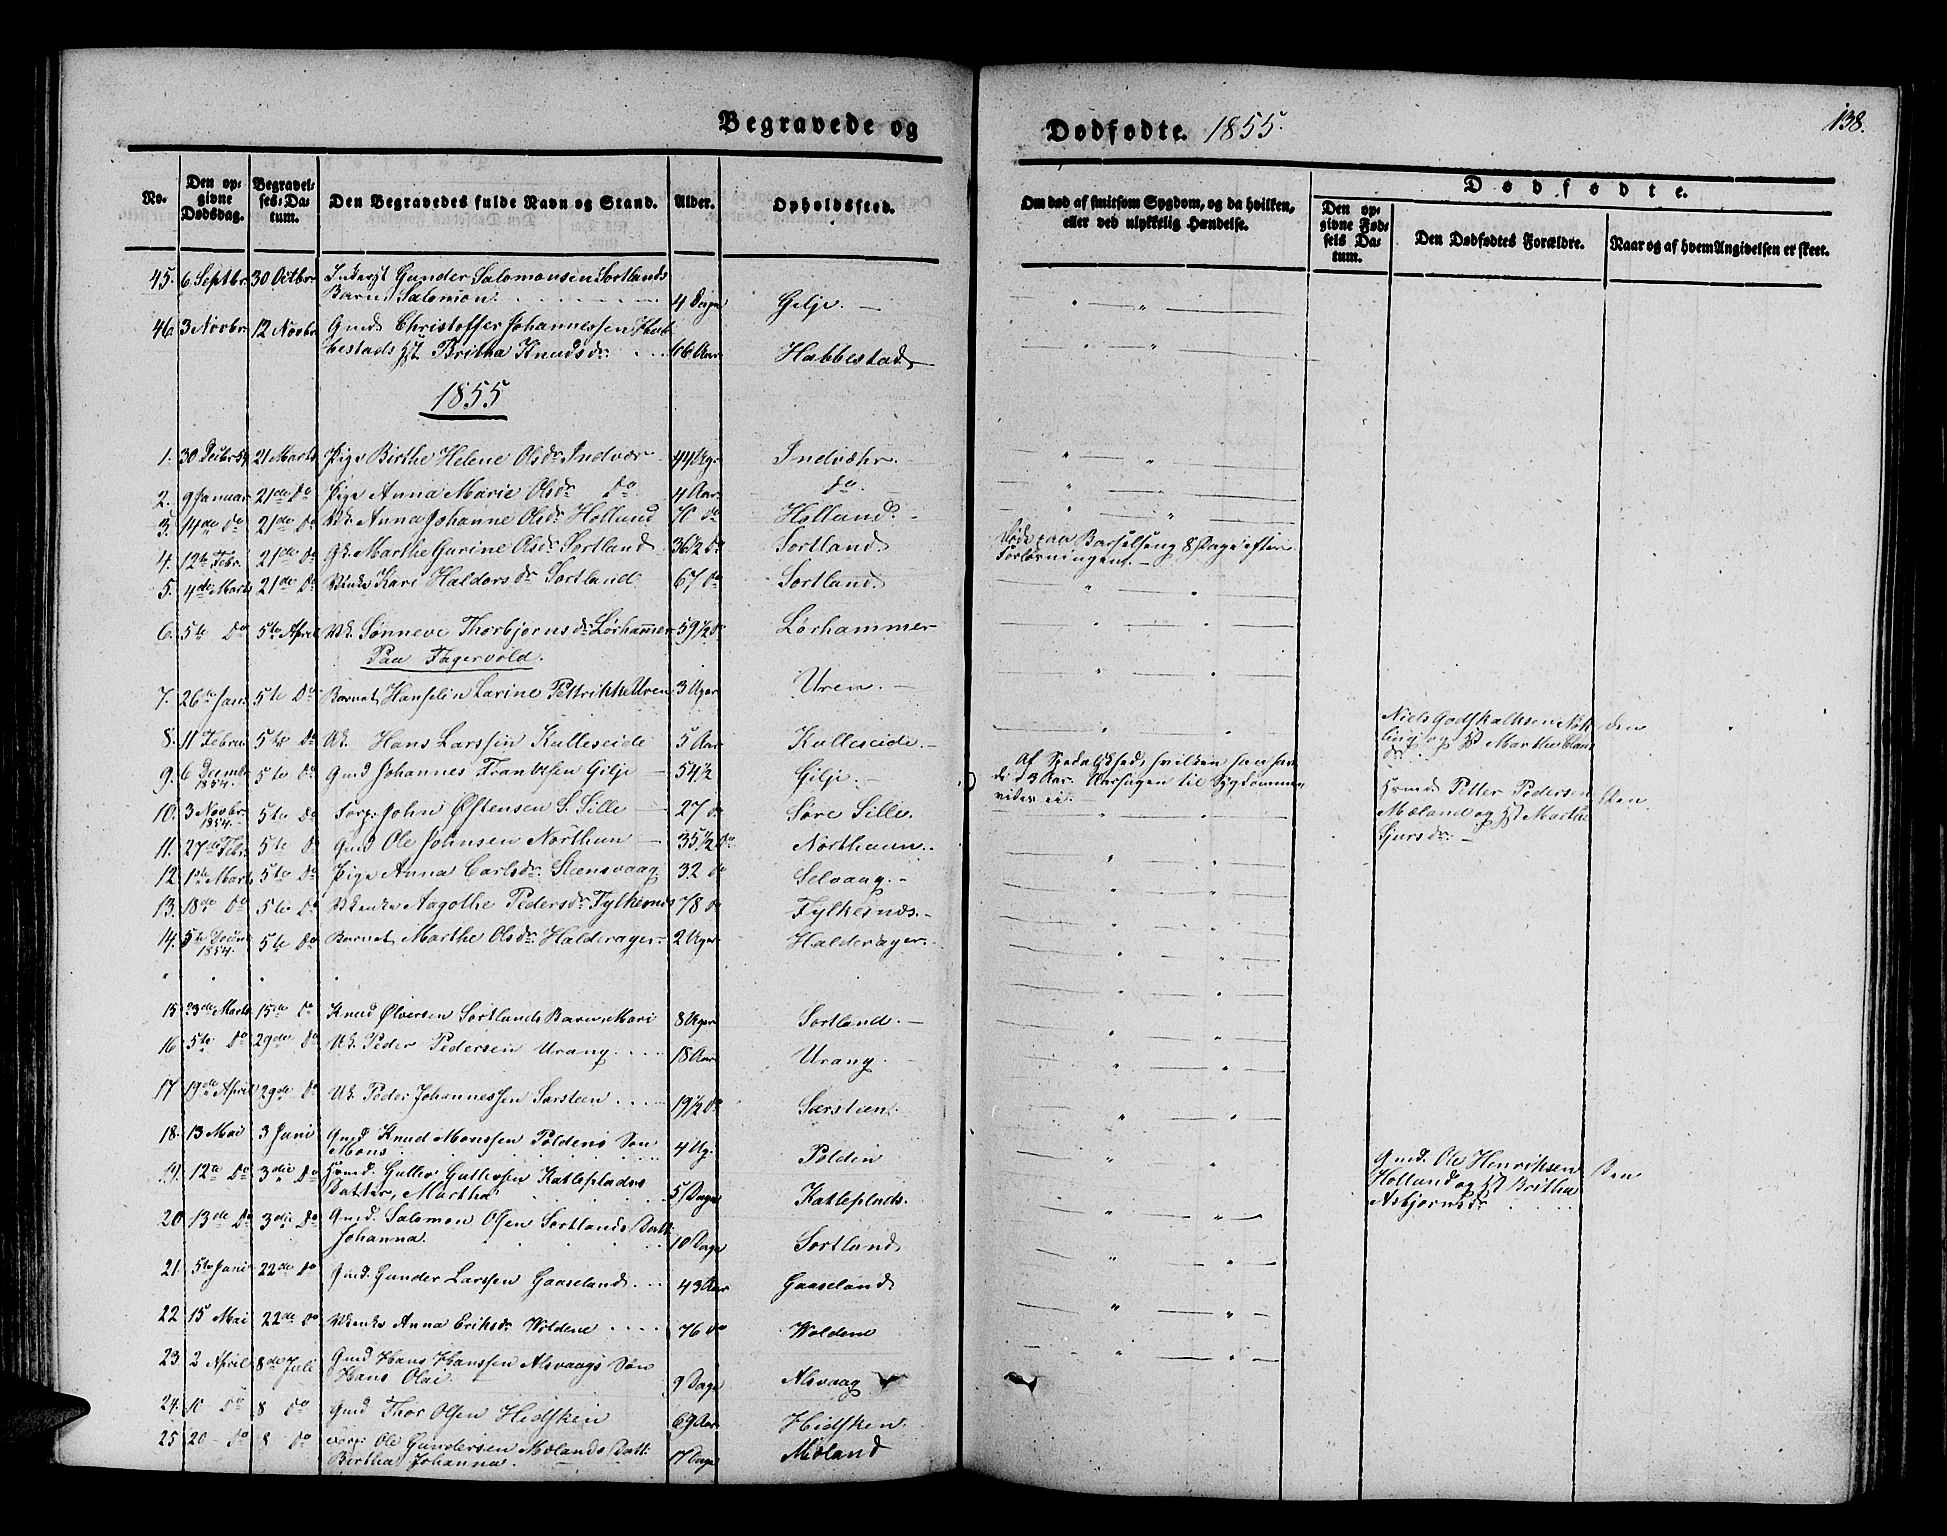 Begravede og
Dødfødte. 1855.
138.
No.
Den opgivne Dødsdag.
Begravelses-Datum.
Den Begravedes fulde Navn og Stand.
Alder.
Opholdssted.
Om død af smitsom Sygdom, og da hvilken,
eller ved ulykkelig Hændelse.
Dødfødte.
Den opgivne Fødsels Datum.
Den Dødfødtes Forældre.
Naar og af hvem Angivelsen er skeet.
45. 6 Septbr. 30 Octbr. Gunder Salomonsen Sortlands
Barn Salomon. 4 Dage Gilje.
46. 3 Novbr. 12 Novbr. Gmd. Christoffer Johannessen Hab-
bestads Britha Knudsdr. 66 Aar Habbestad
1855
1. 30 Decbr 54 21 Marts Pige Birthe Helene Olsdr. Indvær 44 Uger Indvæhr.
2. 9 Januar 21de Do Pige Anna Marie Olsdr. Do 4 Aar do.
3. 14de Do 21de Do Anna Johanne Olsdr. Holland 70 Do Holland.
4. 12te Febr. 21de Do Marthe Gurine Olsdr. Sortland 36 1/2 Do Sortland Døde paa Barselseng 8 Dage efter
Forløsningen.
5. 4de Marts 21de Do Enke Kari Haldorsdr. Sortland 67 Do Sortland
6. 5te Do 5te April Sønneve Thorbjørnsdr. Lørhammer 59 1/2 Do Lørhammer
Paa Fagervold.
7. 26te Jan. 5te Do Barnet Hanselin Larine Pettrikke Uren 3 Uger Uren.
8. 11 Februar 5te Do Uk. Hans Larssen Kulleseide 5 Aar Kulleseide. Niels Godskalksen Nøk-
ling og Marthe
9. 6 Decembr 1854. 5te Do Gmd Johannes Frantsen Gilje 54 1/2 Gilje. Af Spedalskhed, hvilken han hav-
de i 3 Aar. Aarsagen til Sygdommen
vides ei.
Petter Pedersen
Mæland og Marthe
Sjursdr.
10. 3 Novbr. 1854. 5te Do John Østensen S. Sille 27 Do Søre Sille.
11. 27de Febr. 5te Do Gmd Ole Johnsen Northun 35 1/2 Do Northuun.
12. 1ste Marts 5te Do Pige Anna Carlsdr. Stensvaag 32 Do Selvaag.
13. 18de Do 5te Do Enke Aagothe Pedersdr. Fylkesnæs 78 Do Fylkesnæs.
14. 5te Decbr 1854. 5te Do Barnet Marthe Olsdr. Halderager 2 Uger Halderager.
15. 23de Marts 15de Do Knud Ølversen Sortlands Barn, Mari 8 Uger Sortland.
16. 5te Do 29de Do Uk. Peder Pedersen Urang. 18 Aar Urang.
17. 19de April 29de Do Uk. Peder Johannessen Særsteen 19 1/2 Do Særsteen.
18. 13 Mai 3 Juni Gmd Knud Monssen Poldens Søn
Mons 4 Ug. Polden
19. 12te Do 3die Do Gullev Gullevsen Katleplads
Datter, Martha 5 Dage Katleplads. Gmd. Ole Henriksen
Holland og Britha
Asbjørnsdr.
20. 13de Do 3die Do Gmd. Salomon Olsen Sortlands Datt.
Johanna. 10 Dage Sortland
21. 5te Juni 22de Do Gmd. Gunder Larssen Gaaseland 43 Aar Gaaseland
22. 15 Mai 22de Do Enke Anna Eriksdr. Woldene 76 Do Woldene
23. 2 April 8de Juli Gmd Hans Hanssen Alsvaags Søn
Hans Olai 9 Dage Alsvaag
24. 10 Do 8 Do Gmd Thor Olsen Hidsken 69 Aar Hidsken
25. 20 Do 8 Do Ole Gundersen Mælands Datt.
Birtha Johanna. 17 Dage Mæland